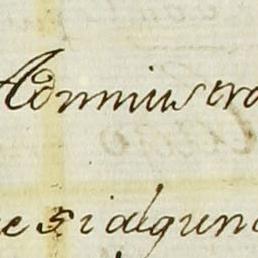 Administra
e si algun